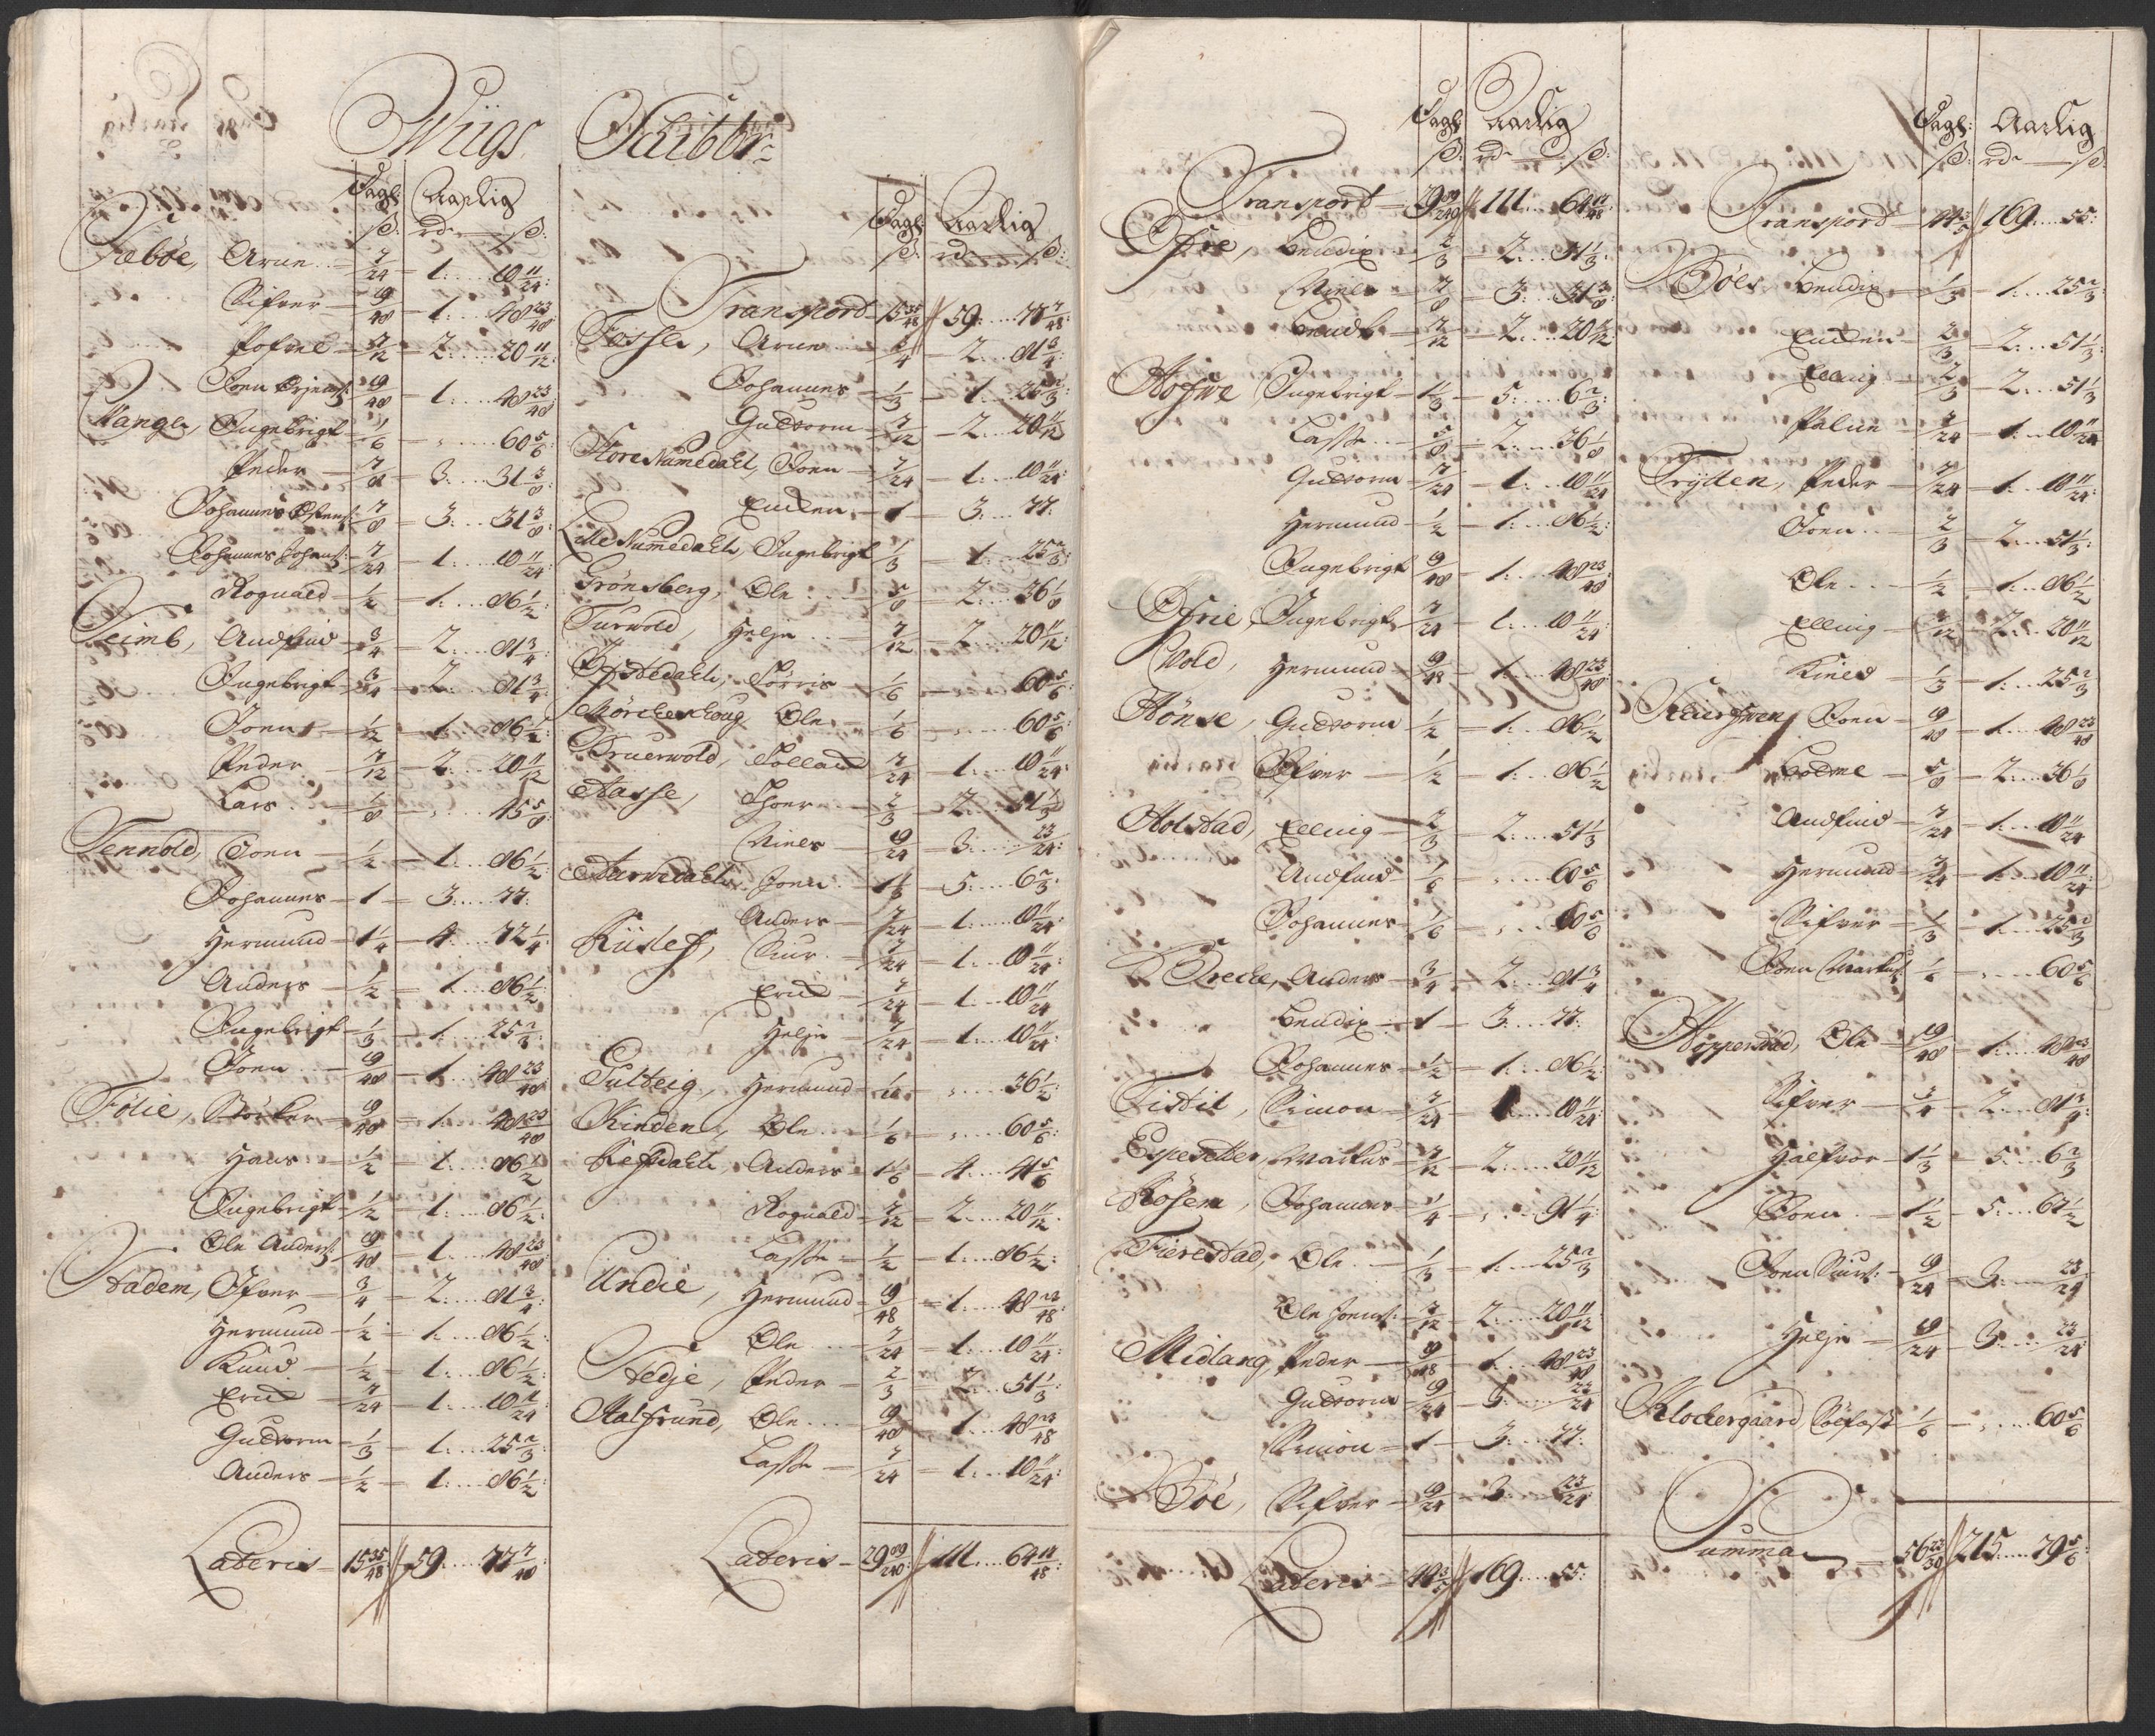 Wiigs Schibbr:
Dagl: Aarlig
ß: rdr ß:
Fæbøe, Arne 7/24 1. 10 11/24:
Sifver 19/48 1. 48 23/48
Pofvel 7/12 2. 20 11/12:
Joen Ørjens: 19/48 1. 48 23/48
Wange, Ingebrigt 1/6 60 5/6
Peder 7/8 3. 31 3/8
Johannes Østens: 7/8 3. 31 3/8
Johannes Johans: 7/24 1. 10 11/24
Rognald 1/2 1. 86 1/2
Seimb, Andfind 3/4 2. 81 3/4
Ingebrigt 3/4 2. 81 3/4
Joen 1/2 1. 86 1/2
Peder 7/12 2. 20 11/12
Lars 1/8 45 5/8
Tennold, Joen 1/2 1. 86 1/2
Johannes 1 3. 77.
Hermund 1 1/4 4. 72 1/4
Anders 1/2 1. 86 1/2
Ingebrigt 1/3 1. 25 2/3
Joen 19/48 1. 48 23/48
Følie, Børker 19/48 1. 48 23/48
Hans 1/2 1. 86 1/2
Ingebrigt 1/2 1. 86 1/2
Ole Anders: 19/48 1. 48 23/48
Hadem, Ifver 3/4 2. 81 3/4
Hermund 1/2 1. 86 1/2
Knud 1/2 1. 86 1/2
Erich 7/24 1. 10 11/24
Gudvorm 1/3 1. 25 2/3
Anders 1/2 1. 86 1/2
Lateris 15 35/48 59. 77 7/48
Dagl: Aarlig
ß: rdr ß:
Transport 15 35/48 59. 77 7/48:
Fosse, Arne 3/4 2. 81 3/4:
Johannes 1/3 1. 25 2/3
Gudvorm 7/12 2. 20 11/12
Store Numedahl, Joen 7/24 1. 10 11/24
Enchen 1 3. 77.
Lille Numedahl, Ingebrigt 1/3 1. 25 2/3
Grønsberg, Ole 5/8 2. 36 1/8
Turwold, Helje 7/12 2. 20 11/12:
Ifstedahl, Siurris 1/6 60 5/6
Mørcheschoug, Ole 1/6 60 5/6
Bruerwold, Tollach 7/24 1. 10 11/24
Aasse, Thoer 2/3 2. 51 1/3
Niels 19/24 3. 23/24:
Aarnedahl, Joen 1 1/3 5. 6 2/3
Anders 7/24 1. 10 11/24:
Siur 7/24 1. 10 11/24
Erich 7/24 1. 10 11/24
Helje 7/24 1. 10 11/24
Hermund 1/10 36 1/2
Rinden, Ole 1/6 60 5/6
Refsdahl, Anders 1 1/6 4. 41 5/6
Rognald 7/12 2. 20 11/12
Lasse 1/2 1. 86 1/2:
Undie, Hermund 19/48 1. 48 23/48
Ole 7/24 1. 10 11/24
Hedje, Peder 2/3 2. 51 1/3
Halsrund, Ole 19/48 1. 48 23/48
Lasse 7/24 1. 10 11/24
Lateris 29 89/240 111. 64 11/48:
Dagl: Aarlig
ß: rdr ß:
Transport 29 89/240 111. 64 11/48
Øfre, Bendix 2/3 2. 51 1/3
Niels 7/8 3. 31 3/8
Bendt 7/12 2. 20 11/12
Hofve, Ingebrigt 1 1/3 5. 6 2/3
Lasse 5/8 2. 36 1/8
Gudvorm 7/24 1. 10 11/24
Hermund 1/2 1. 86 1/2
Ingebrigt 19/48 1. 48 23/48
Øfrie, Ingebrigt 7/24 1. 10 11/24
Wold, Hermund 19/48 1. 48 23/48
Hønse, Gudvorm 1/2 1. 86 1/2
Sifver 1/2 1. 86 1/2
Holstad, Elling 2/3 2. 51 1/3
Andfind 1/6 60 5/6
Johannes 1/6 60 5/6
Breche, Anders 3/4 2. 81 3/4
Bendix 1 3. 77.
Johannes 1/2 1. 86 1/2
Tistil, Simon 7/24 1. 10 11/24
Espesetter, Markus 7/12 2. 20 11/12
Røsem, Johannes 1/4 91 1/4
Fierestad, Ole 1/3 1. 25 2/3
Ole Joens: 7/12 2. 20 11/12
Midlang, Peder 19/48 1. 48 23/48
Gudvorm 19/24 3. 23/24
Simon 1 3. 77.
Bøe, Sifver 19/24 3. 23/24
Lateris 44 3/5 169. 55.
Dagl: Aarlig
ß: rdr ß:
Transport 44 3/5 169. 55:
Bøes Bendix 1/3 1. 25 2/3
Enchen 2/3 2. 51 1/3
Elling 2/3 2. 51 1/3
Palne 7/24 1. 10 11/24
Tryten, Peder 7/24 1. 10 11/24
Joen 2/3 2. 51 1/3
Ole 1/2 1. 86 1/2
Elling 7/12 2. 20 11/12
Knud 1/3 1. 25 2/3
Joen 19/48 1. 48 23/48
Botne 5/8 2. 36 1/8
Andfind 7/24 1. 10 11/24
Hermund 7/24 1. 10 11/24
Sifver 1/3 1. 25 2/3
Joen Markus: 1/6 60 5/6
Hopperstad, Ole 19/48 1. 48 23/48
Sifver 3/4 2. 81 3/4
Halfvor 1 1/3 5. 6 2/3
Joen 1 1/2 5. 67 1/2
Joen Siurs: 19/24 3. 23/24
Helje 19/24 3. 23/24
Klochergaard, Siofast 1/6 60 5/6
Summa 56 23/30 215. 79 5/6